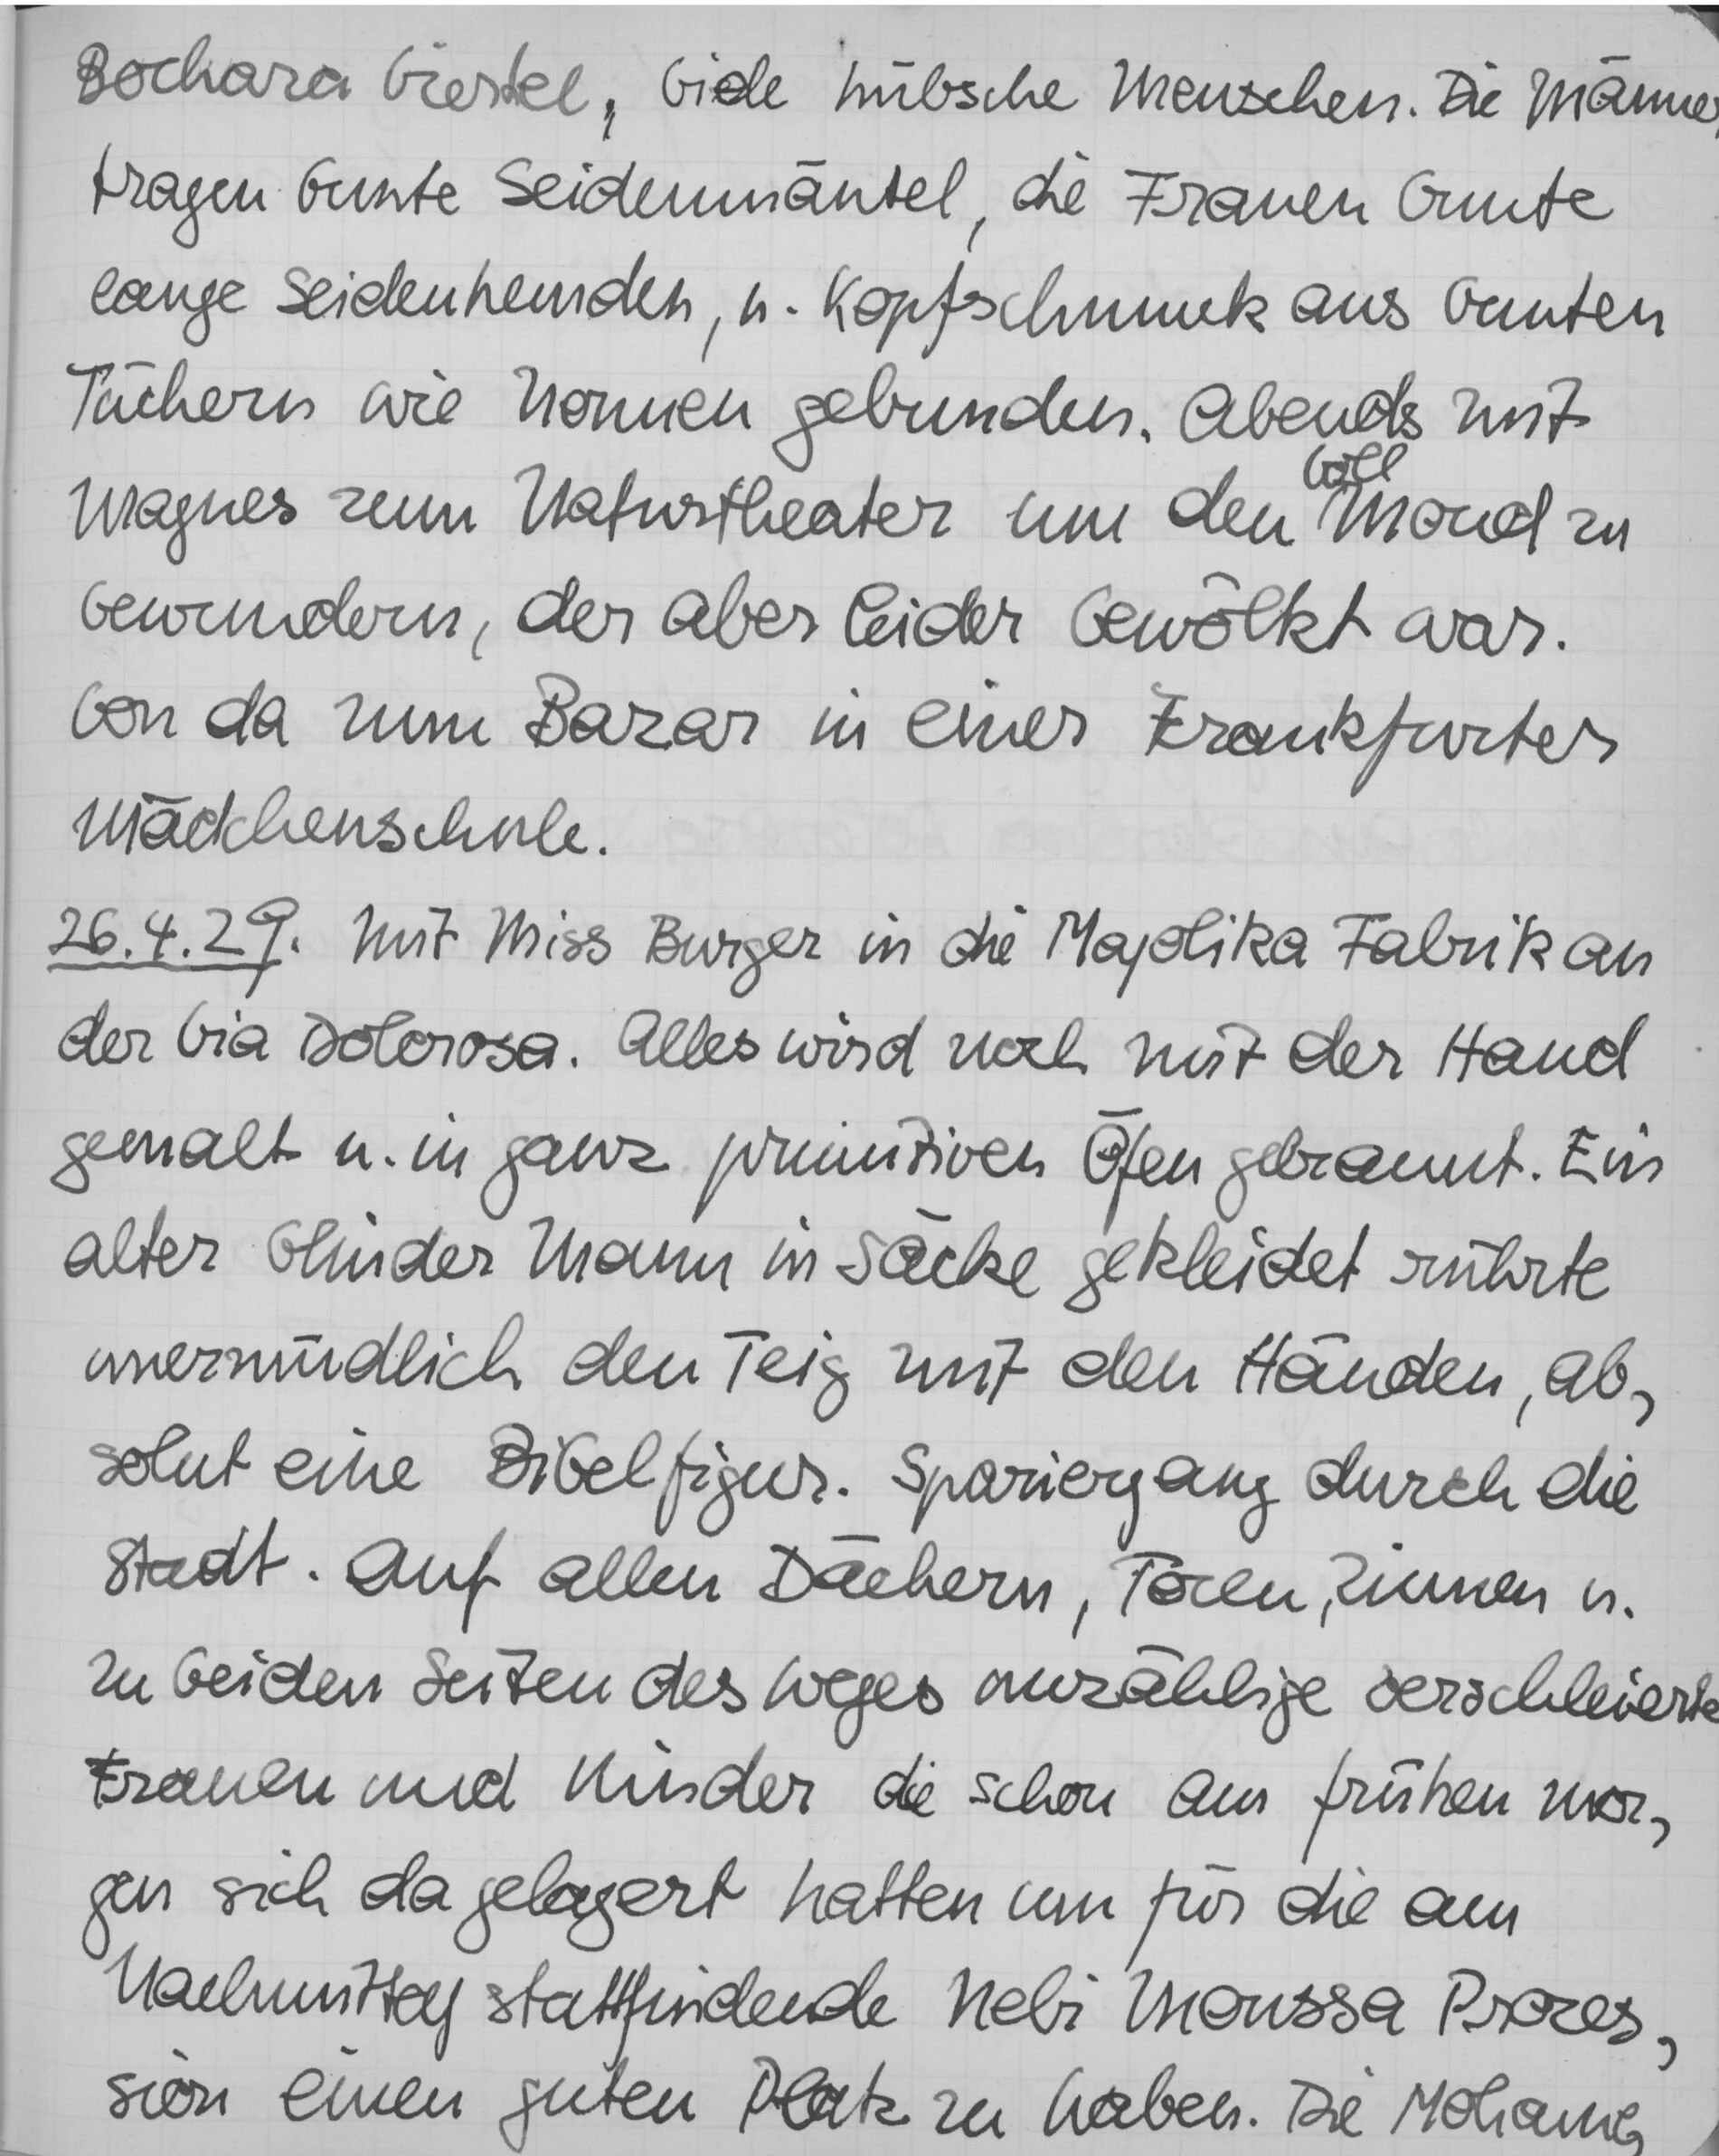 Bochara Viertel, viele hübsche Menschen. Die Männer
tragen bunte Seidenmäntel, die Frauen bunte
lange Seidenhemden, u. Kopfschmuck aus bunten
Tüchern wie Nonnen gebunden. Abends mit
Magnes zum Naturtheater um den Vollmond zu
bewundern, der aber leider bewölkt war.
Von da zum Bazar in einer Frankfurter
Mädchenschule.
26.4.29. Mit Miss Burger in die Majolika Fabrik an
der Via Dolorosa. Alles wird noch mit der Hand
gemalt u. in ganz primitiven Öfen gebrannt. Ein
alter blinder Mann in Säcke gekleidet rührte
unermüdlich den Teig mit den Händen, ab,
solut eine Bibelfigur. Spaziergang durch die
Stadt. Auf allen Dächern, Toren, Zinnen u.
zu beiden Seiten des Weges unzählige verschleierte
Frauen und Kinder die schon am frühen Mor,
gen sich da gelagert hatten um für die am
Nachmittag stattfindende Nebi Moussa Prozes,
sion einen guten Platz zu haben. Die Mohame,